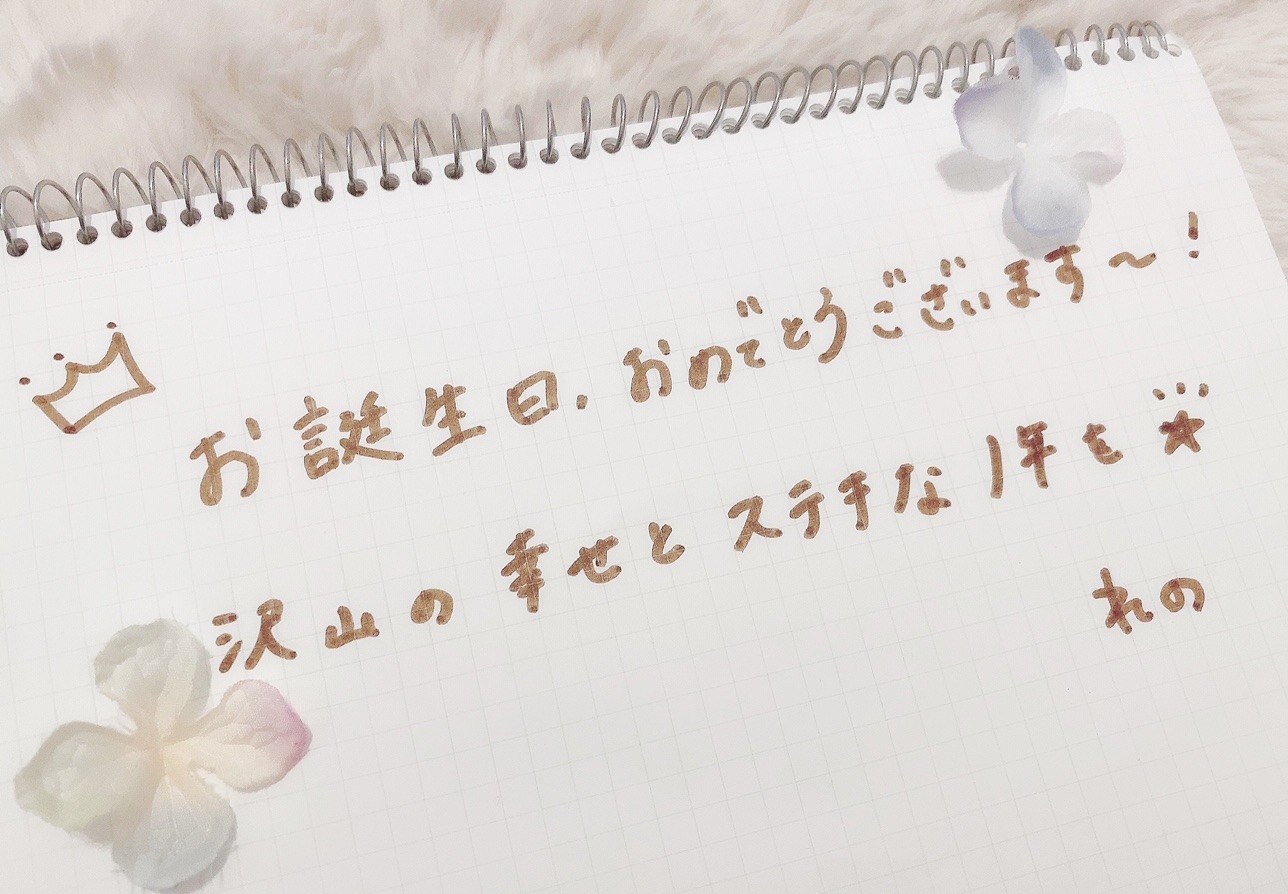 お誕生日、おめでとうございます〜!
沢山の幸せとステキな1年を★
れの